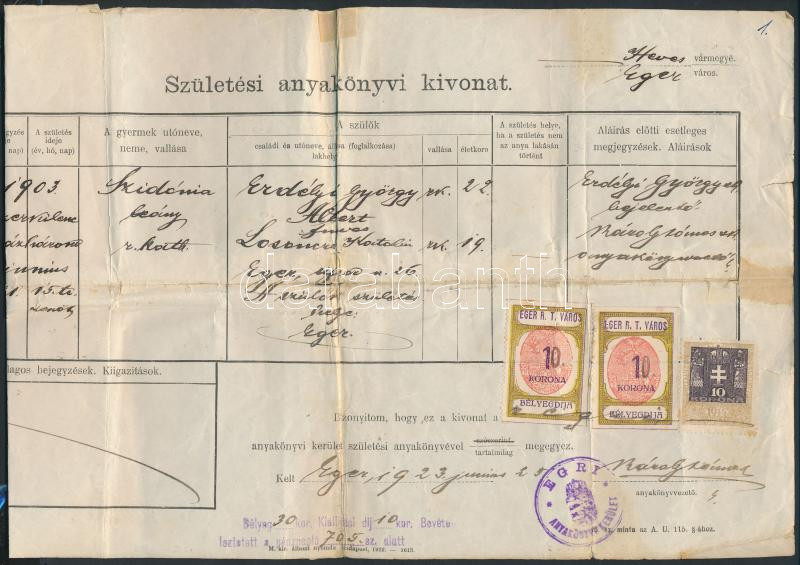 1.
Heves vármegye.
Eger város.
Születési anyakönyvi kivonat.
A születés ideje (év, hó, nap)
A gyermek utóneve, neme, vallása
A szülők
családi és utóneve, állása (foglalkozása) lakhelye
vallása
életkora
A születés helye, ha a születés nem az anya lakásán történt
Aláírás előtti esetleges megjegyzések. Aláírások
1903
Szidónia
leány
r. kath.
június
15.
Erdélyi György rk. 22.
Losoncz Katalin rk. 19.
Eger,
A szülők születés
helye:
Eger.
Erdélyi György
bejelentő.
anyakönyvvezető
lagos bejegyzések. Kiigazítások.
EGER R. T. VÁROS
10
KORONA
BÉLYEGDIJA
EGER R. T. VÁROS
10
KORONA
BÉLYEGDIJA
10
KORONA
Bizonyítom, hogy ez a kivonat a
anyakönyvi kerület születési anyakönyvével szószerint tartalmilag megegyez.
Kelt Eger, 1923 június 25
anyakönyvvezető.
EGRI
ANYAKÖNYVI KERÜLET
Bélyeg 30 kor. Kiállítási díj 10 kor. Bevéte-
leztetett a pénznapló 705 sz. alatt
M. kir. állami nyomda Budapest, 1922.
minta az A. U. 115. §-ához.
darabanth